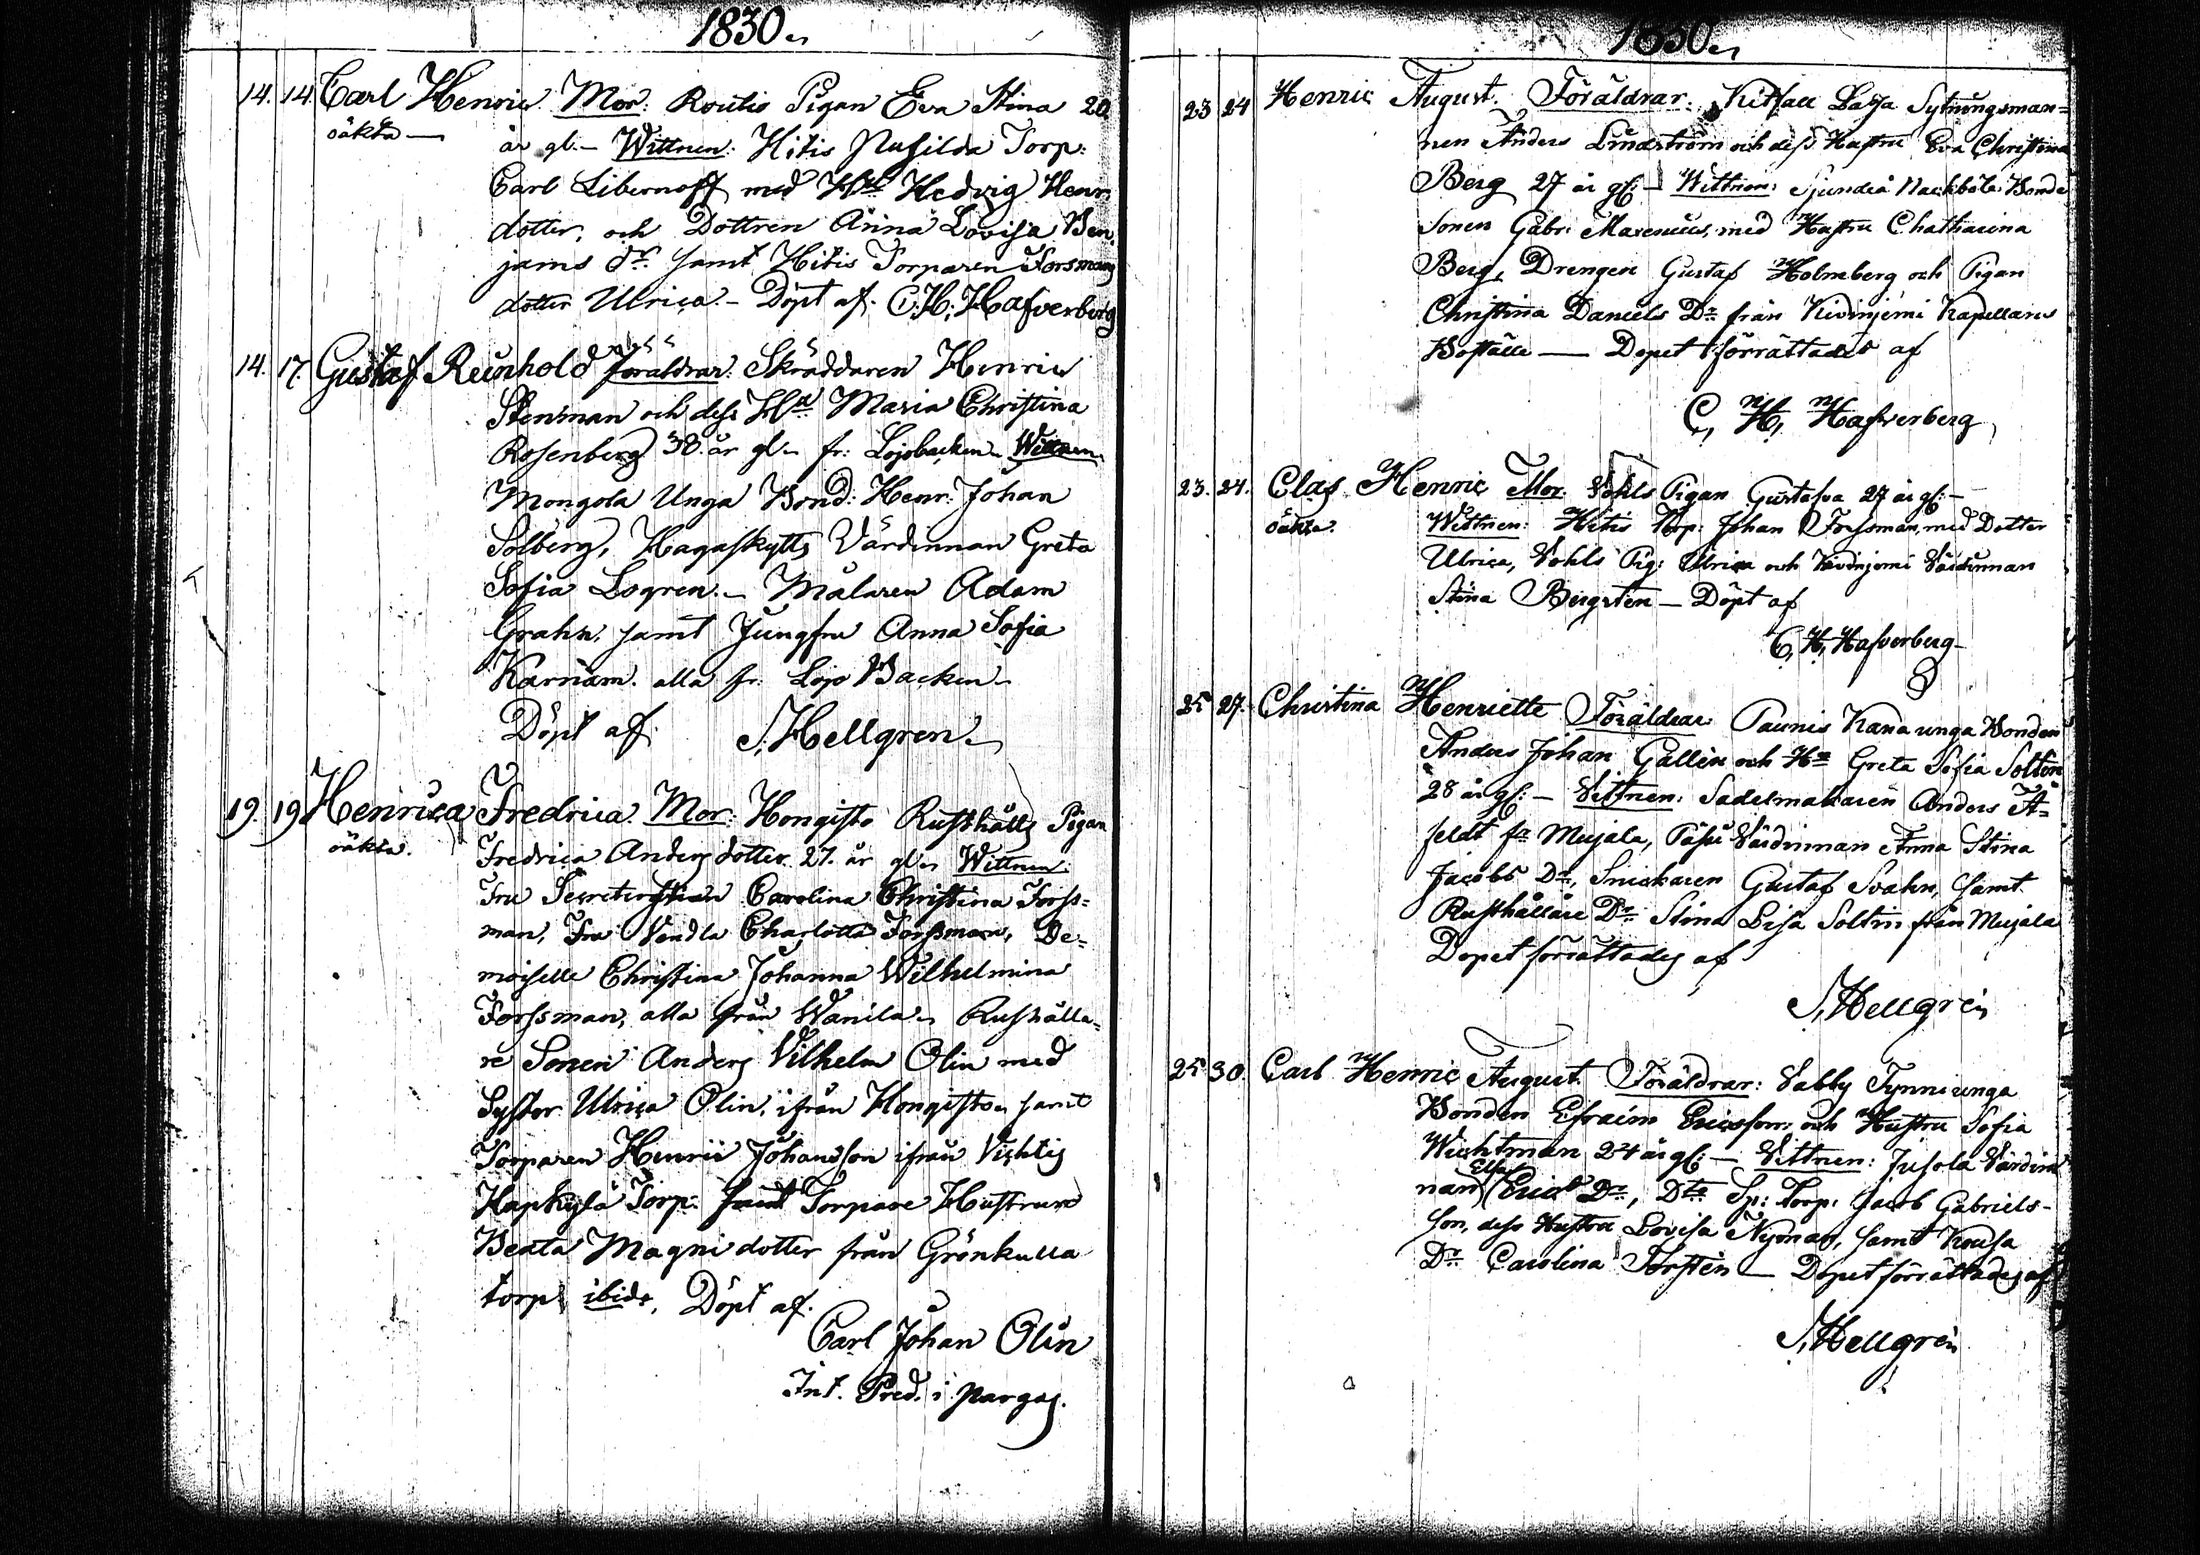 1830.
14. 14. Carl Henric Mor: Routio Pigan Eva Stina 20
oäkta — år gl. — Wittnen: Hitis Nusilda Torp:
Carl Libernoff med H:u Hedvig Henr:
dotter, och Dottren Anna Lovisa Ben,
jams d:r samt Hitis Torparen Forsmans
dotter Ulrica. — Döpt af. C. H. Hafverberg
14. 17. Gustaf Reinhold Föräldrar: Skräddaren Henric
Stensman och dess H:u Maria Christina
Rosenberg 38. år gl. fr: Lojobacken. Wittnen.
Mongola Unga Bond: Henr: Johan
Solberg, Hagaskytts Värdinnan Greta
Sofia Logren. — Målaren Adam
Grahn, samt Jungfru Anna Sofia
Karnäm. alla fr: Lojo Backen.
Döpt af. J. Hellgren.
19. 19 Henrica Fredrica. Mor: Hongisto Rusthålls Pigan
oäkta. Fredrica Anders dotter. 27. år gl. Wittnen:
Fru Secreterskan Carolina Christina Forss=
man, Fru Vendla Charlotta Forssman, De=
moiselle Christina Johanna Wilhelmina
Forssman, alla från Wanila. Rusthålla=
re Sonen Anders Vilhelm Olin med
Syster Ulrica Olin, ifrån Hongisto. samt
Torparen Henric Johansson ifrån Vichtis
Haapkylä Torp. samt Torpare Hustrun
Beata Magni dotter från Grönkulla
torp ibid., Döpt af.
Carl Johan Olin
Int. Pred. i Pargas.
1830.
23 24 Henric August. Föräldrar: Kitfall Lassa Sytningsman=
nen Anders Lindström och dess Hustru Eva Christina
Berg 27 år gl: — Wittnen: Sjundeå Nackböle Bonde
Sonen Gabr: Marenius, med Hustru Chatharina
Berg, Drengen Gustaf Holmberg och Pigan
Christina Daniels D:r från Kivinjemi Kapellans
Boställe — Dopet förrättades af
C, H, Hafverberg
23. 24. Clas Henric Mor. Vohls Pigan Gustafva 27 år gl: —
oäkta. Wittnen: Hitis Torp: Johan Forssman, med Dotter
Ulrica, Vohls Pig: Ulrica och Kivinjemi Värdinnan
Stina Bergsten — Döpt af
C, H, Hafverberg
25 27. Christina Henriette Föräldrar Paunis Kana unga Bonden
Anders Johan Gallen och H:u Greta Sofia Soltin
28 år gl: — Vittnen: Sadelmakaren Anders A=
feldt fr Muijala, Päsu Värdinnan Anna Stina
Jacobs D:r, Snickaren Gustaf Svahn, samt
Rusthållare D:r Stina Lisa Soltin från Muijala
Dopet förrättades af
J. Hellgrén
25 30. Carl Henric August. Föräldrar: Vabby Tynni unga
Bonden Efraim Ericsson och Hustru Sofia
Wichtman 24 år gl: — Vittnen: Jusola Värdin
nan Elsa Erics D:r, D:to Sp: Torp: Jacob Gabriels-
son, dess Hustru Lovisa Nyman, samt Kousa
D:r Carolina Torstén — Dopet förrättades af
J. Hellgrén